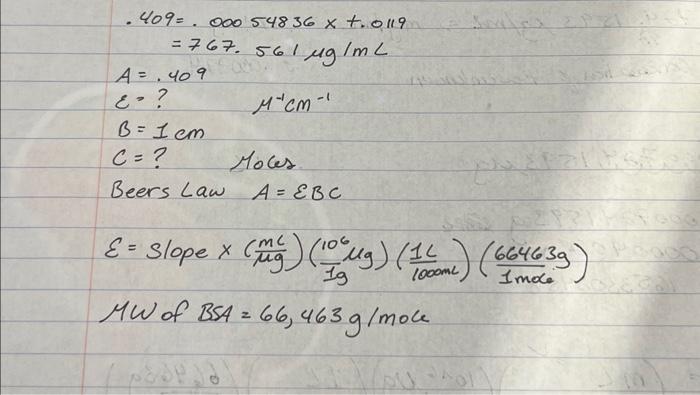 .409 = .00054836 x + .0119
= 767.561 µg/mL
A = .409
ε = ? M⁻¹cm⁻¹
B = 1 cm
C = ? Moles
Beers Law A = εBC
ε = Slope x (mL/µg) (10⁶ µg/1g) (1L/1000mL) (66463g/1mole)
MW of BSA = 66,463 g/mole